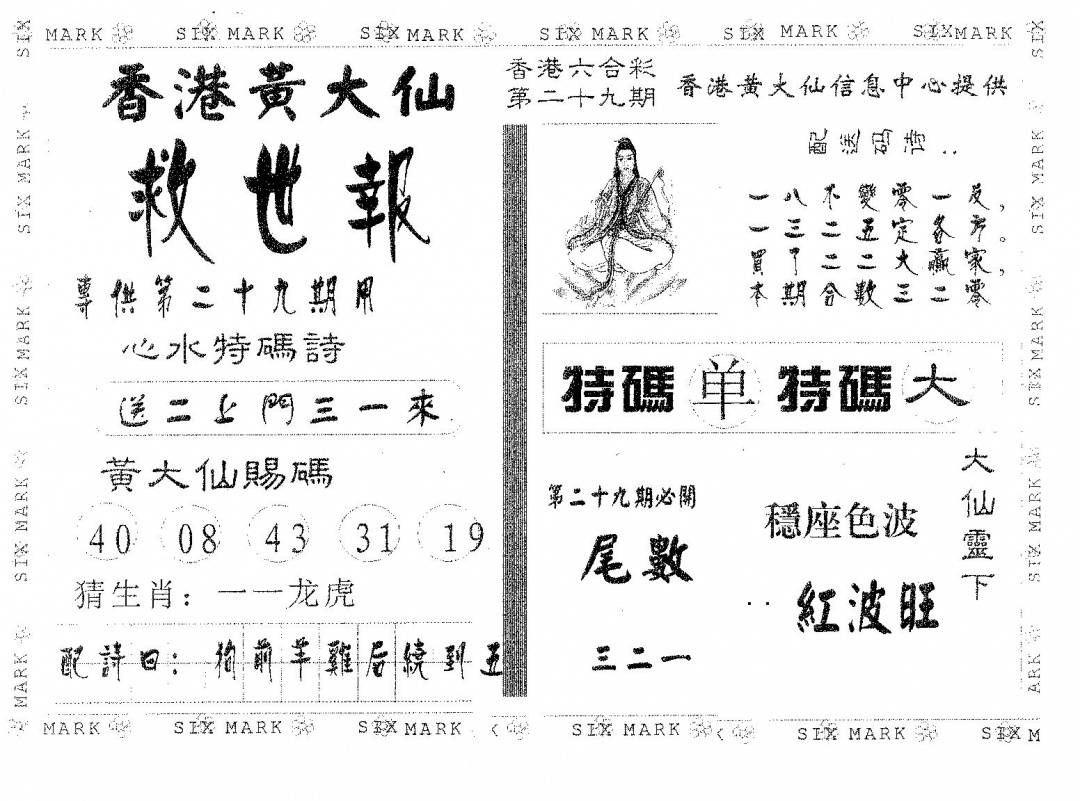 SIX MARK SIX MARK SIX MARK SIX MARK SIX MARK SIXMARK
香港黃大仙
救世報
專供第二十九期用
心水特碼詩
送二上門三一來
黃大仙賜碼
40 08 43 31 19
猜生肖：一一龙虎
配詩曰：狗前羊雞后繞到五
香港六合彩
第二十九期
香港黃大仙信息中心提供
配送码诗：
一八不變零一反，
一三二五定各方。
買了二二大贏家，
本期合數三二零
特碼 单 特碼 大
第二十九期必開
尾數
三二一
穩座色波
紅波旺
大仙靈下
MARK SIX MARK SIX MARK SIX MARK SIX MARK SIX M